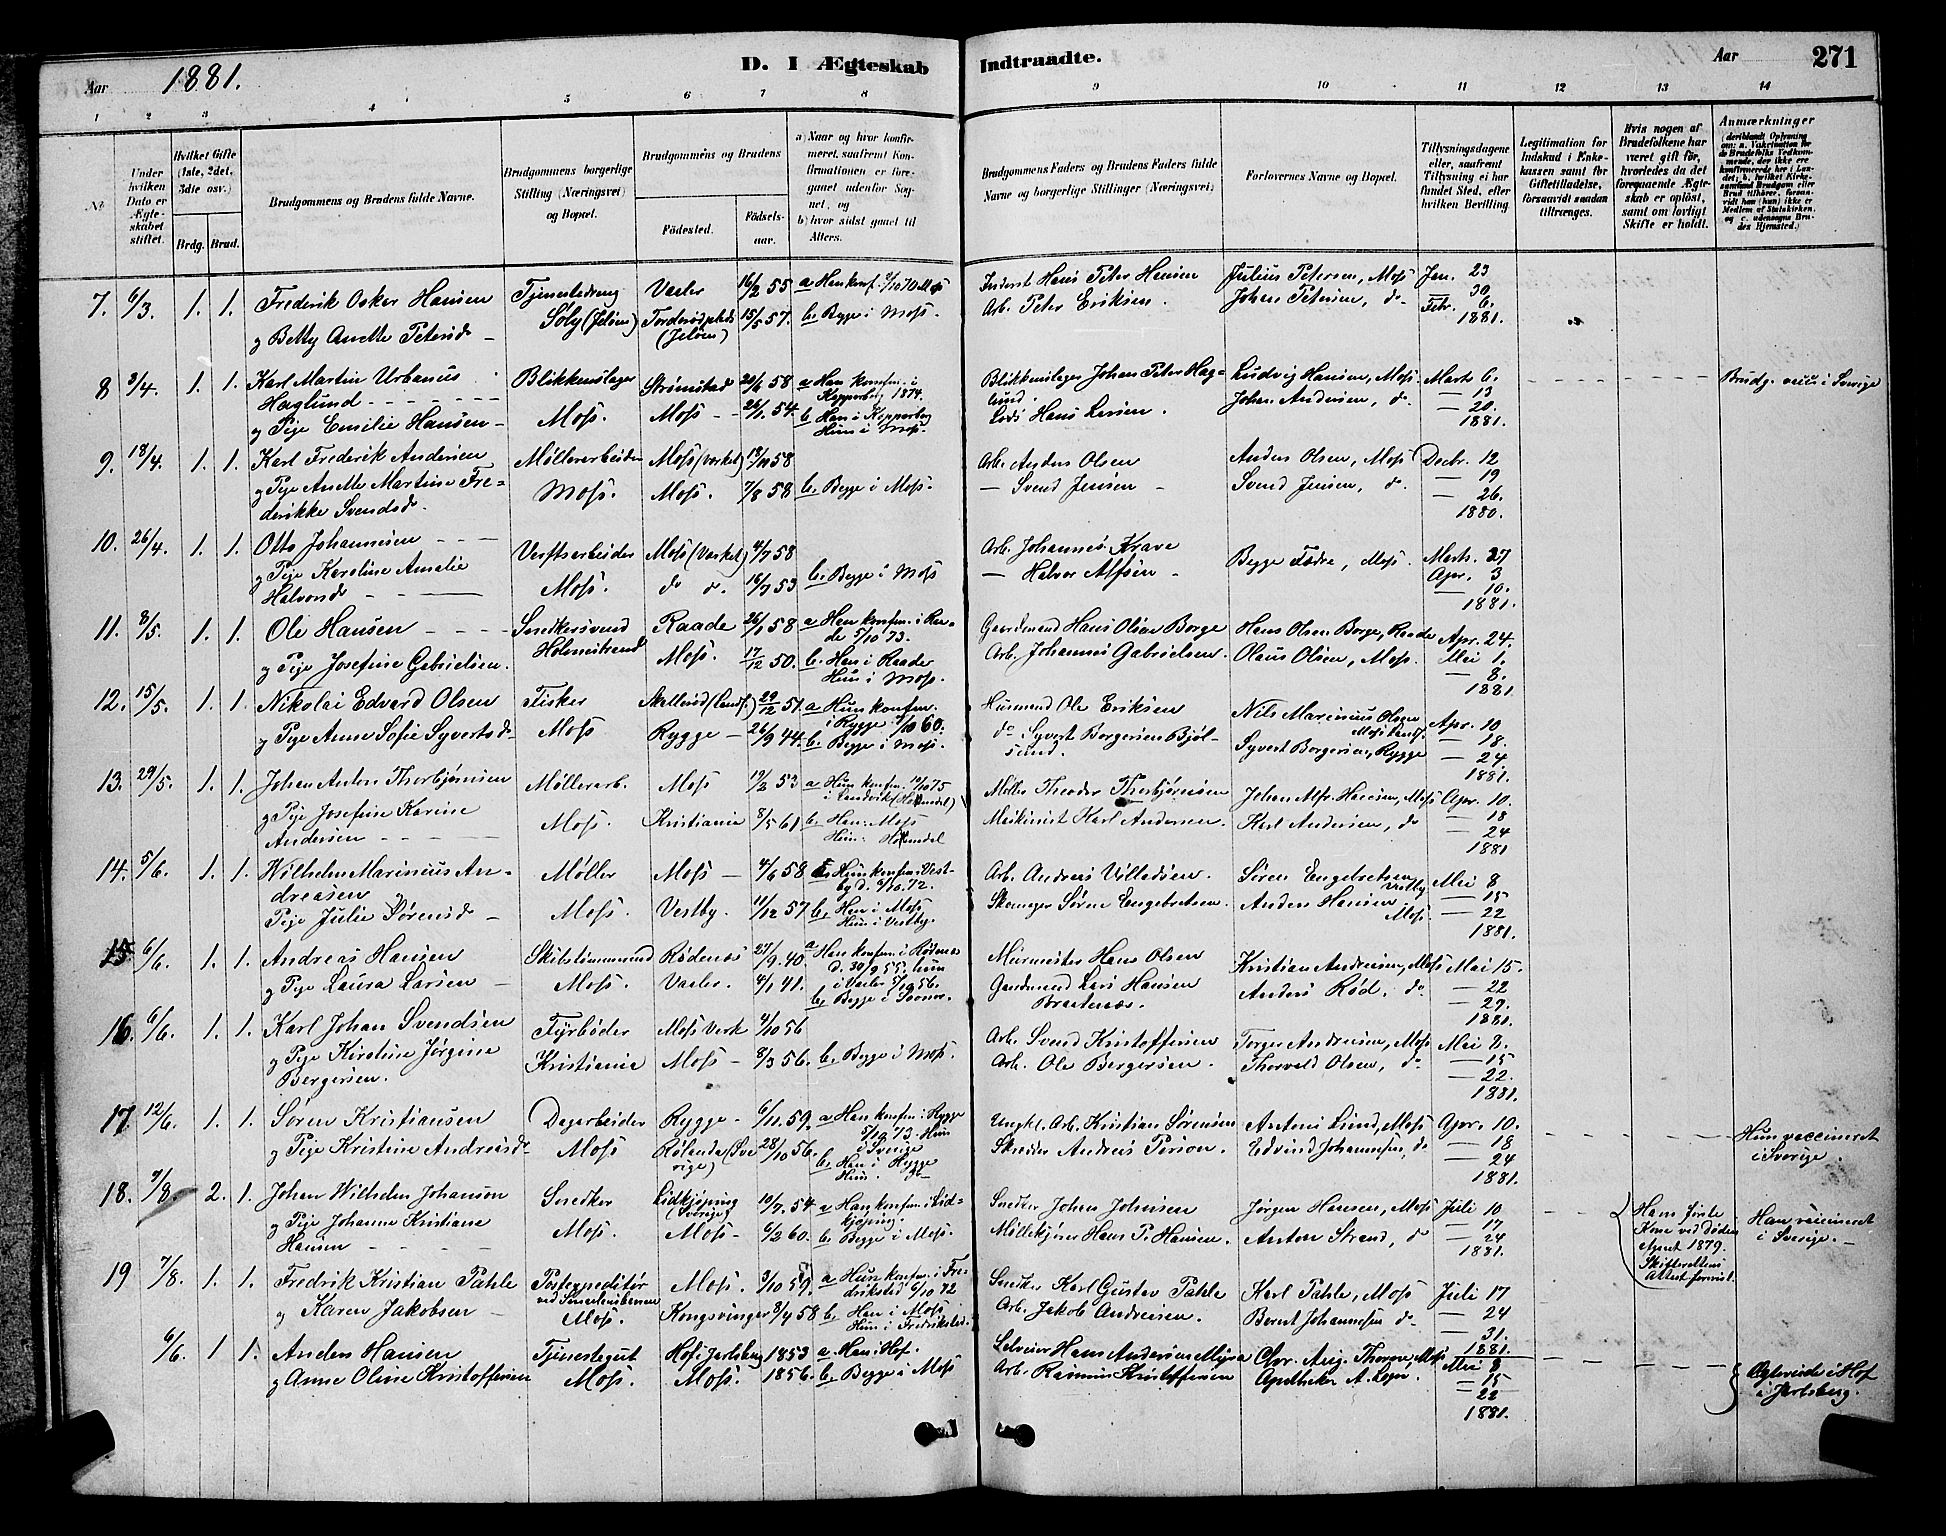 Aar 1881.
D. I Ægteskab Indtraadte.
Aar
271
1 2 3 4 5 6 7 8 9 10 11 12 13 14
№
Under hvilken Dato er Ægteskabet stiftet.
Hvilket Gifte (1ste, 2det, 3die osv.)
Brdg. Brud.
Brudgommens og Brudens fulde Navne.
Brudgommens borgerlige Stilling (Næringsvei) og Bopæl.
Brudgommens og Brudens
Fødested.
Fødselsaar.
a) Naar og hvor konfirmeret, saafremt Konfirmationen er foregaaet udenfor Sognet, og
b) hvor sidst gaaet til Alters.
Brudgommens Faders og Brudens Faders fulde Navne og borgerlige Stillinger (Næringsvei)
Forlovernes Navne og Bopæl.
Tillysningsdagene eller, saafremt Tillysning ei har fundet Sted, efter hvilken Bevilling.
Legitimation for Indskud i Enkekassen samt for Giftetilladelse, forsaavidt saadan tiltrænges.
Hvis nogen af Brudefolkene har været gift før, hvorledes da det foregaaende Ægteskab er opløst, samt om lovligt Skifte er holdt.
Anmærkninger
7. 6/3. 1. 1. Frederik Oskar Hansen
og Betty Anette Petersd.
Tjenestedreng
Søly (Jeløen)
Vaaler
Torderødplads (Jeløen)
16/2 55
15/5 57.
a Han konf. 2/10 70 Moss
b. Begge i Moss.
Inderst Hans Peter Hansen
Arb. Peter Eriksen.
Julius Petersen, Moss
Johan Petersen, do
Jan. 23
30.
Febr. 6.
1881.
8 3/4. 1. 1. Karl Martin Urbanus
Haglund
og Pige Emilie Hansen
Blikkenslager
Moss.
Strømstad
Moss
20/6 58
26/1 54.
a Han konfm. i
Kopparberg 1874.
b Han i Kopparberg
Hun i Moss.
Blikkenslager Johan Peter Haglund.
Lods Hans Larsen.
Ludvig Hansen, Moss.
Johan Andersen, do.
Marts 6.
— 13
— 20.
1881.
Brudg. vacc. i Sverige
9. 18/4. 1. 1. Karl Frederik Andersen
og Pige Anette Martine Frederikke Svendsd.
Møllerarbeider
Moss.
Moss (Verket)
Moss.
18/11 58
7/8 58
b. Begge i Moss.
Arb. Anders Olsen
— Svend Jensen
Anders Olsen, Moss
Svend Jensen, do.
Decbr. 12
— 19
— 26.
1880.
10. 26/4. 1. 1. Otto Johannesen
og Pige Karoline Amalie
Halvorsd.
Verftsarbeider
Moss.
Moss (Verket)
do do.
4/7 58
16/7 53
b. Begge i Moss
Arb. Johannes Krave
— Halvor Alfsen
Begge Fædre, Moss.
Marts 27
Apr. 3
— 10.
1881.
11. 8/5. 1. 1. Ole Hansen
og Pige Josefine Gabrielsen.
Snedkersvend
Holmestrand
Raade
Moss.
26/1 58
17/12 50.
a Han konfm. i Raade 5/10 73.
b. Han i Raade
Hun i Moss.
Gaardmand Hans Olsen Borge
Arb. Johannes Gabrielsen.
Hans Olsen Borge, Raade
Olaus Olsen, Moss.
Apr. 24.
Mai 1.
— 8.
1881
12. 15/5. 1. 1. Nikolai Edvard Olsen
og Pige Anne Sofie Syvertsd.
Fisker
Moss
Rygge
29/12 51.
26/9 44.
a Hun konfm.
i Rygge 7/10 60.
b. Begge i Moss.
Husmand Ole Eriksen
do Syvert Borgersen Bjølsund.
Nils Marinius Olsen
Moss Lands.
Syvert Borgersen, Rygge
Apr. 10
— 18.
— 24
1881.
13. 29/5. 1. 1. Johan Anton Thorbjørnsen
og Pige Josefine Karine
Andersen
Møllerarb.
Moss.
Moss
Kristiania
19/2 53
8/5 61
b. Han: Moss
Møller Theodor Thorbjørnsen
Maskinist Karl Andersen.
Johan Alfr. Hansen, Moss
Karl Andersen, do
Apr. 10.
— 18
— 24
1881
14. 5/6. 1. 1. Wilhelm Marinius Andreasen
og Pige Julie Sørensd.
Møller
Moss.
Moss
Vestby.
4/6 58
11/12 57
a Hun konfm. i Vestby d. 6/10. 72.
b. Han i Moss
Hun i Vestby.
Arb. Andreas Villadsen.
Skomager Søren Engebretsen.
Søren Engebretsen, Vestby
Anders Hansen Moss
Mai 8
— 15
— 22
1881.
15 6/6. 1. 1. Andreas Hansen
og Pige Laura Larsen
Skibstømmermand
Moss.
Rødenes
Vaaler.
27/9. 40.
4/1 41.
a Han konfm. i Rødenes
d. 30/9 55. hun
i Vaaler 5/10 56.
b. Begge i
Murmester Hans Olsen
Gaardmand Lars Hansen
Braatenæs.
Kristian Andresen, Moss
Anders Rød, do.
Mai 15.
— 22
— 29.
1881.
16. 6/6. 1. 1. Karl Johan Svendsen
og Pige Kirstine Jørgine
Bergersen.
Fyrbøder
Kristiania
Moss Verk
Moss
4/10 56
8/3 56.
b. Begge i Moss.
Arb. Svend Kristoffersen
Arb. Ole Bergersen.
Torger Andresen, Moss
Thorvald Olsen, do
Mai 8.
— 15
— 22.
1881.
17. 12/6. 1. 1. Søren Kristiansen
og Pige Kristine Andreasd.
Dagarbeider
Moss
Rygge
Rølanda (Sverige)
6/11. 59.
28/10 56.
a Han konfm. i Rygge
5/10 73. Hun
i Sverige
b. Han i Rygge
Hun do
Ungkl. Arb. Kristian Sørensen
Skrædder Andreas Person.
Anton Lund, Moss
Edvind Johannesen, do
Apr. 10.
— 18
— 24
1881.
Hun vaccineret
i Sverige.
18. 7/8 2. 1. Johan Wilhelm Johanson
og Pige Johanne Kristiane
Hansen
Snedker
Moss.
Lidkjøping
(Sverige)
Moss
10/7. 54.
6/2 60.
a Han konfm. i Lidkjøping.
b. Begge i Moss.
Snedker Johan Johnsen
Møllekjører Hans P. Hansen.
Jørgen Hansen, Moss
Anton Strand, do
Juli 10
— 17
— 24
1881.
Hans første
Kone ved Døden
afgaaet 1879.
Skifterettens
Attest forevist.
Han vaccineret
i Sverige.
19 7/8. 1. 1. Fredrik Kristian Pahle
og Karen Jakobsen
Postexpeditør
ved Smaalensbanen
Moss.
Moss.
Kongsvinger
3/10 59.
8/4 58
a Hun konfm. i Fredriksstad 6/10 72
b. Han i Moss
Hun i Fredriksstad.
Snedker Karl Gustav Pahle
Arb. Jakob Andresen.
Karl Pahle, Moss
Bernt Johannesen do
Juli 17
— 24
— 31.
1881.
6/6. 1 1. Anders Hansen
og Anne Oline Kristoffersen
Tjenestegut
Moss.
Hof i Jarlsberg
Moss.
1853
1856.
a. Han i Hof.
b. Begge i Moss
Selveier Hans Andersen Myra
Arb. Rasmus Kristoffersen
Chr. Aug. Thorne, Moss
Apotheker A.
Mai 8
— 15
— 22
1881.
Ægteviede i Hof
i Jarlsberg.